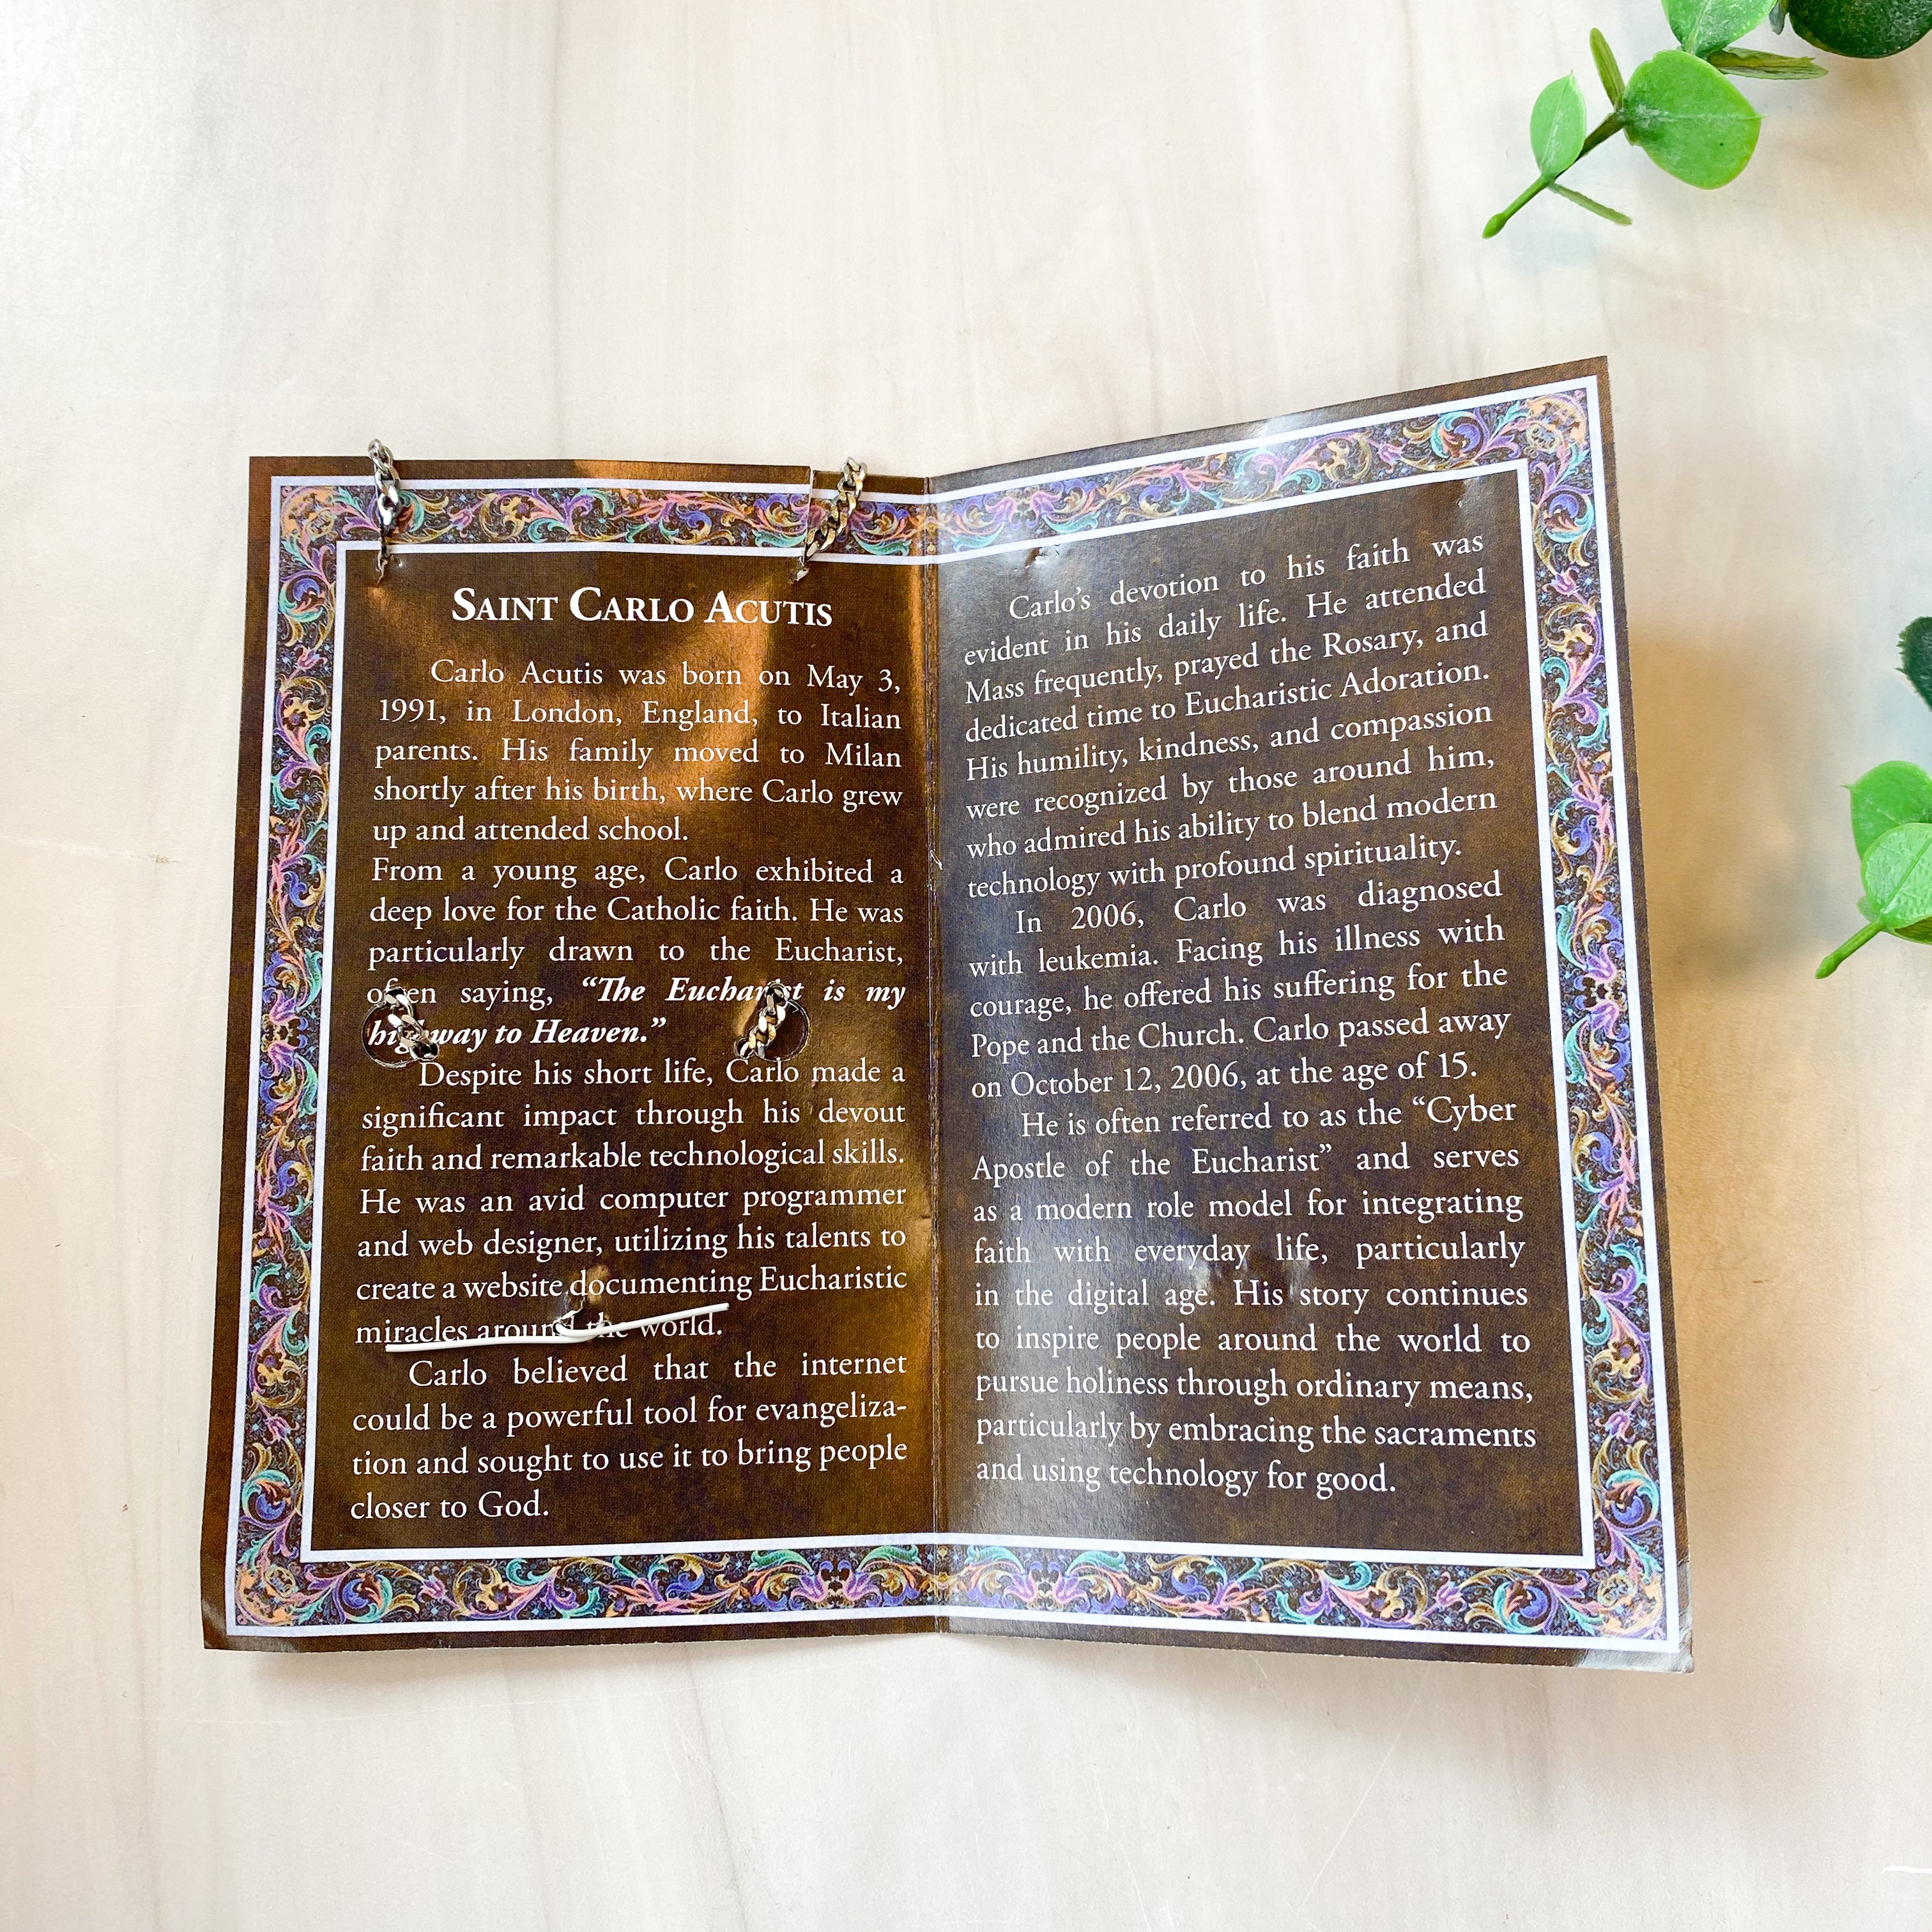 SAINT CARLO ACUTIS
Carlo Acutis was born on May 3,
1991, in London, England, to Italian
parents. His family moved to Milan
shortly after his birth, where Carlo grew
up and attended school.
From a young age, Carlo exhibited a
deep love for the Catholic faith. He was
particularly drawn to the Eucharist,
often saying, “The Eucharist is my
highway to Heaven.”
Despite his short life, Carlo made a
significant impact through his devout
faith and remarkable technological skills.
He was an avid computer programmer
and web designer, utilizing his talents to
create a website documenting Eucharistic
miracles around the world.
Carlo believed that the internet
could be a powerful tool for evangeliza-
tion and sought to use it to bring people
closer to God.
Carlo’s devotion to his faith was
evident in his daily life. He attended
Mass frequently, prayed the Rosary, and
dedicated time to Eucharistic Adoration.
His humility, kindness, and compassion
were recognized by those around him,
who admired his ability to blend modern
technology with profound spirituality.
In 2006, Carlo was diagnosed
with leukemia. Facing his illness with
courage, he offered his suffering for the
Pope and the Church. Carlo passed away
on October 12, 2006, at the age of 15.
He is often referred to as the “Cyber
Apostle of the Eucharist” and serves
as a modern role model for integrating
faith with everyday life, particularly
in the digital age. His story continues
to inspire people around the world to
pursue holiness through ordinary means,
particularly by embracing the sacraments
and using technology for good.